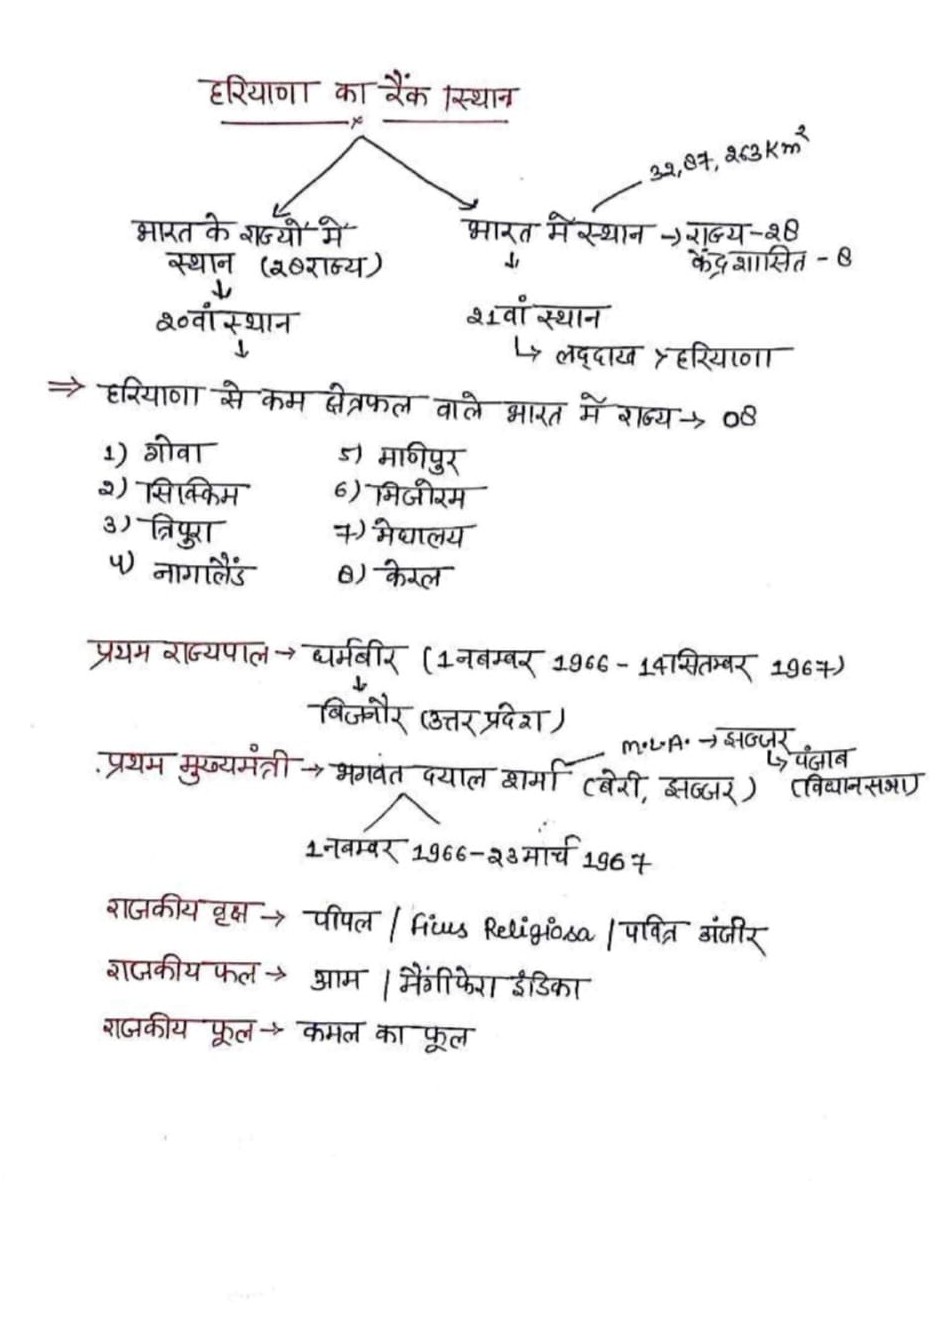 हरियाणा का रैंक |स्थान
32,87,263 Km²
भारत के राज्यों में
स्थान (28राज्य)
↓
20वां स्थान
↓
भारत में स्थान → राज्य-28
केंद्रशासित - 8
↓
21वां स्थान
↳ लद्दाख > हरियाणा
⇒ हरियाणा से कम क्षेत्रफल वाले भारत में राज्य → 08
1) गोवा
2) सिक्किम
3) त्रिपुरा
4) नागालैंड
5) मणिपुर
6) मिजोरम
7) मेघालय
8) केरल
प्रथम राज्यपाल → धर्मबीर (1 नबम्बर 1966 - 14 सितम्बर 1967)
↓
बिजनौर (उत्तर प्रदेश)
M.L.A. → झज्जर
↳ पंजाब
(विधानसभा)
प्रथम मुख्यमंत्री → भगवंत दयाल शर्मा (बेरी, झज्जर)
1 नबम्बर 1966-23 मार्च 1967
राजकीय वृक्ष → पीपल / Ficus Religiosa / पवित्र अंजीर
राजकीय फल → आम / मैंगीफेरा इंडिका
राजकीय फूल → कमल का फूल